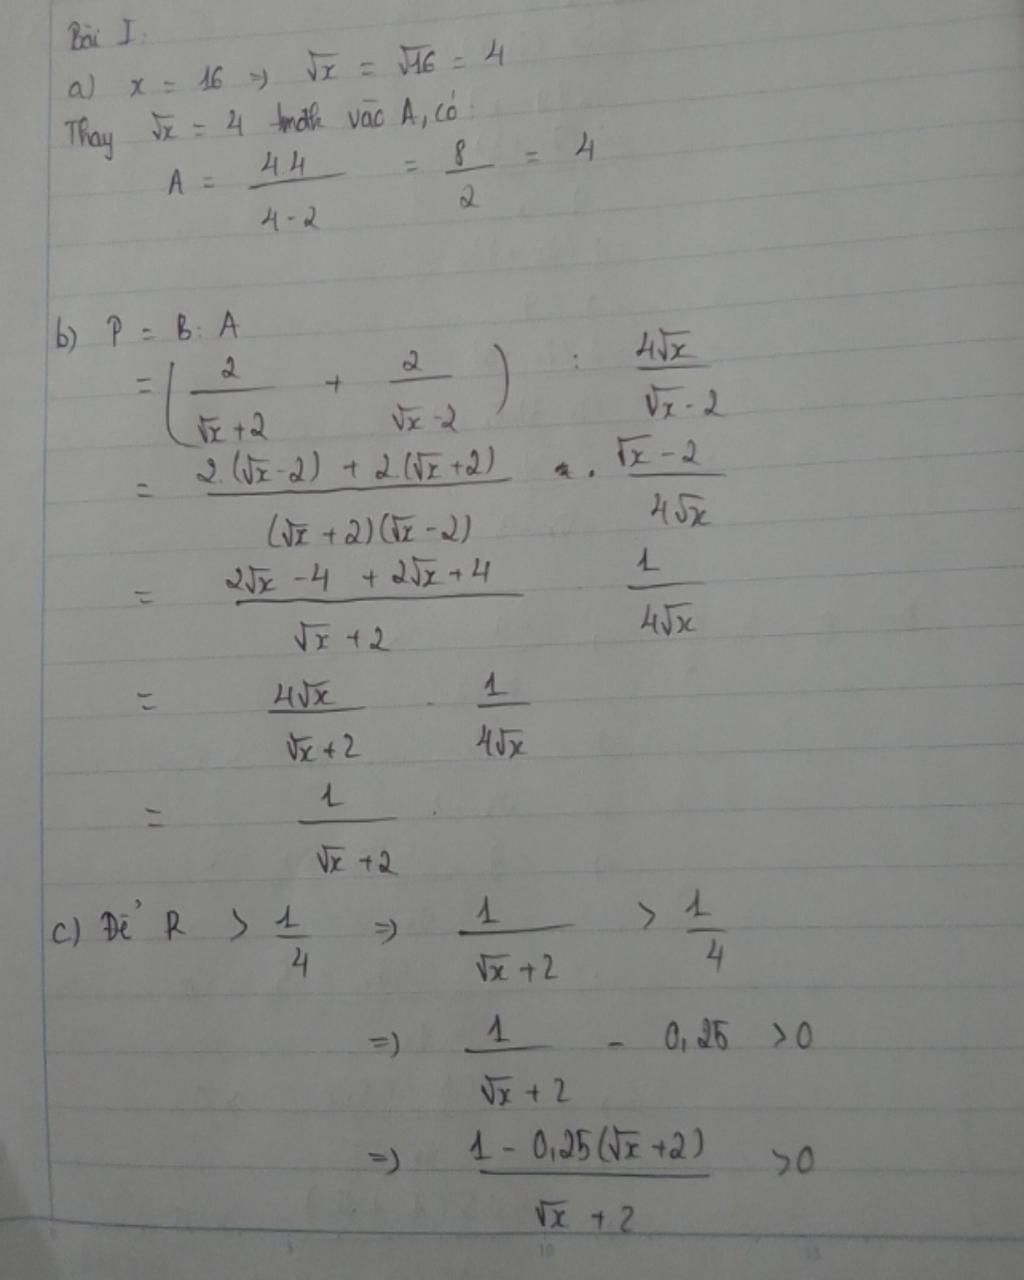 Bài I:
a) x = 16 => √x = √16 = 4
Thay √x = 4 vào A, có:
A = 4.4 / 4-2 = 8/2 = 4
b) P = B : A
= ( 2/(√x+2) + 2/(√x-2) ) : 4√x/(√x-2)
= (2.(√x-2) + 2.(√x+2)) / ((√x+2)(√x-2)) . (√x-2)/(4√x)
= (2√x -4 + 2√x+4) / (√x+2) 1/(4√x)
= 4√x/(√x+2) . 1/(4√x)
= 1/(√x+2)
c) Để R > 1/4 => 1/(√x+2) > 1/4
=> 1/(√x+2) - 0,25 >0
=> (1 - 0,25(√x+2)) / (√x+2) >0